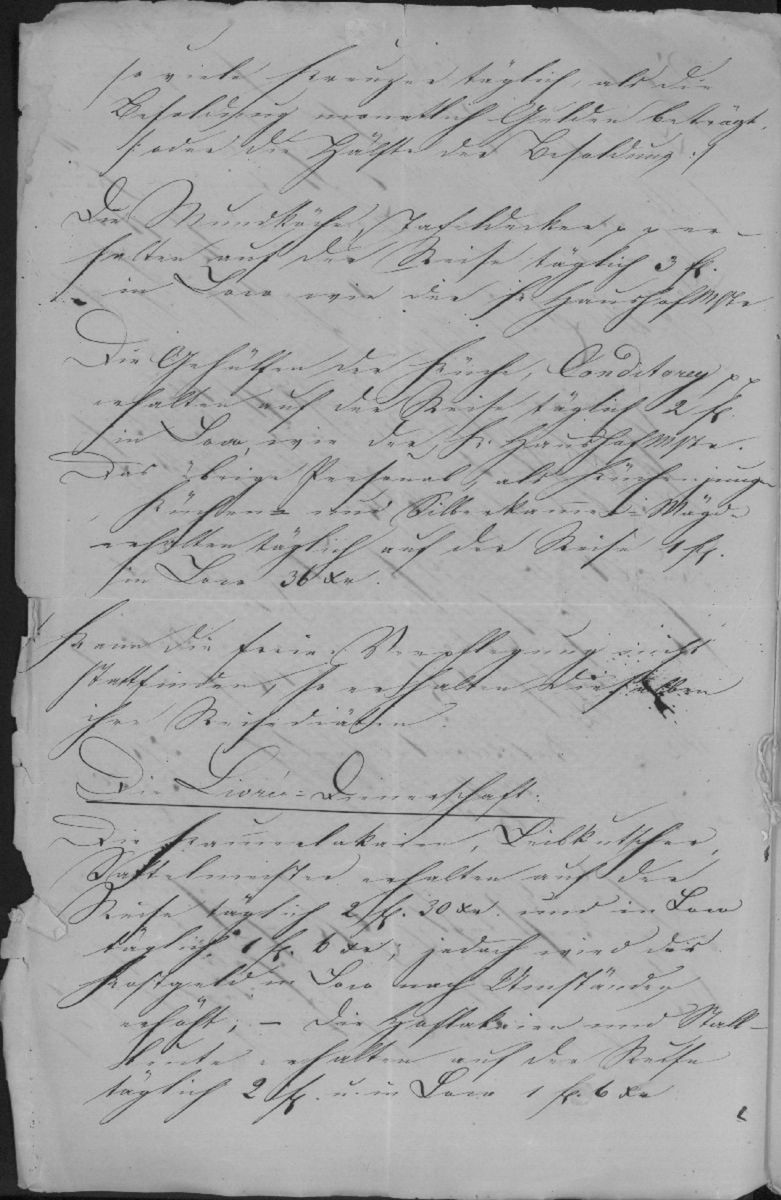 so viele Kreuzer täglich, als die
Besoldung monatlich Gulden beträgt,
/: oder die Hälfte der Besoldung :/
Die Mundköche, Tafeldecker p. p. er-
halten auf der Reise täglich 3 fl.
in Loco wie der H. Haushofmstr
Die Gehülfen der Küche, Conditorey p p
erhalten auf der Reise täglich 2 fl.
in Loco, wie der H. Haushofmstr.
Das übrige Personal, als Küchenjunge
Küchen- und Silberkammer-Mägde
erhalten täglich auf der Reise 1 fl.
in Loco 36 Xr.
Kann die freie Verpflegung nicht
stattfinden, so erhalten dieselben
ihre Reisediäten.
Die Livrée-Dienerschaft.
Die Kammerlakaien, Leibkutscher,
Sattelmeister erhalten auf der
Reise täglich 2 fl. 30 Xr. und in Loco
täglich 1 fl. 6 Xr, jedoch wird das
Kostgeld in Loco nach Umständen
erhöht; – Die Hoflakaien und Stall-
leute erhalten auf der Reise
täglich 2 fl. u. in Loco 1 fl. 6 Xr